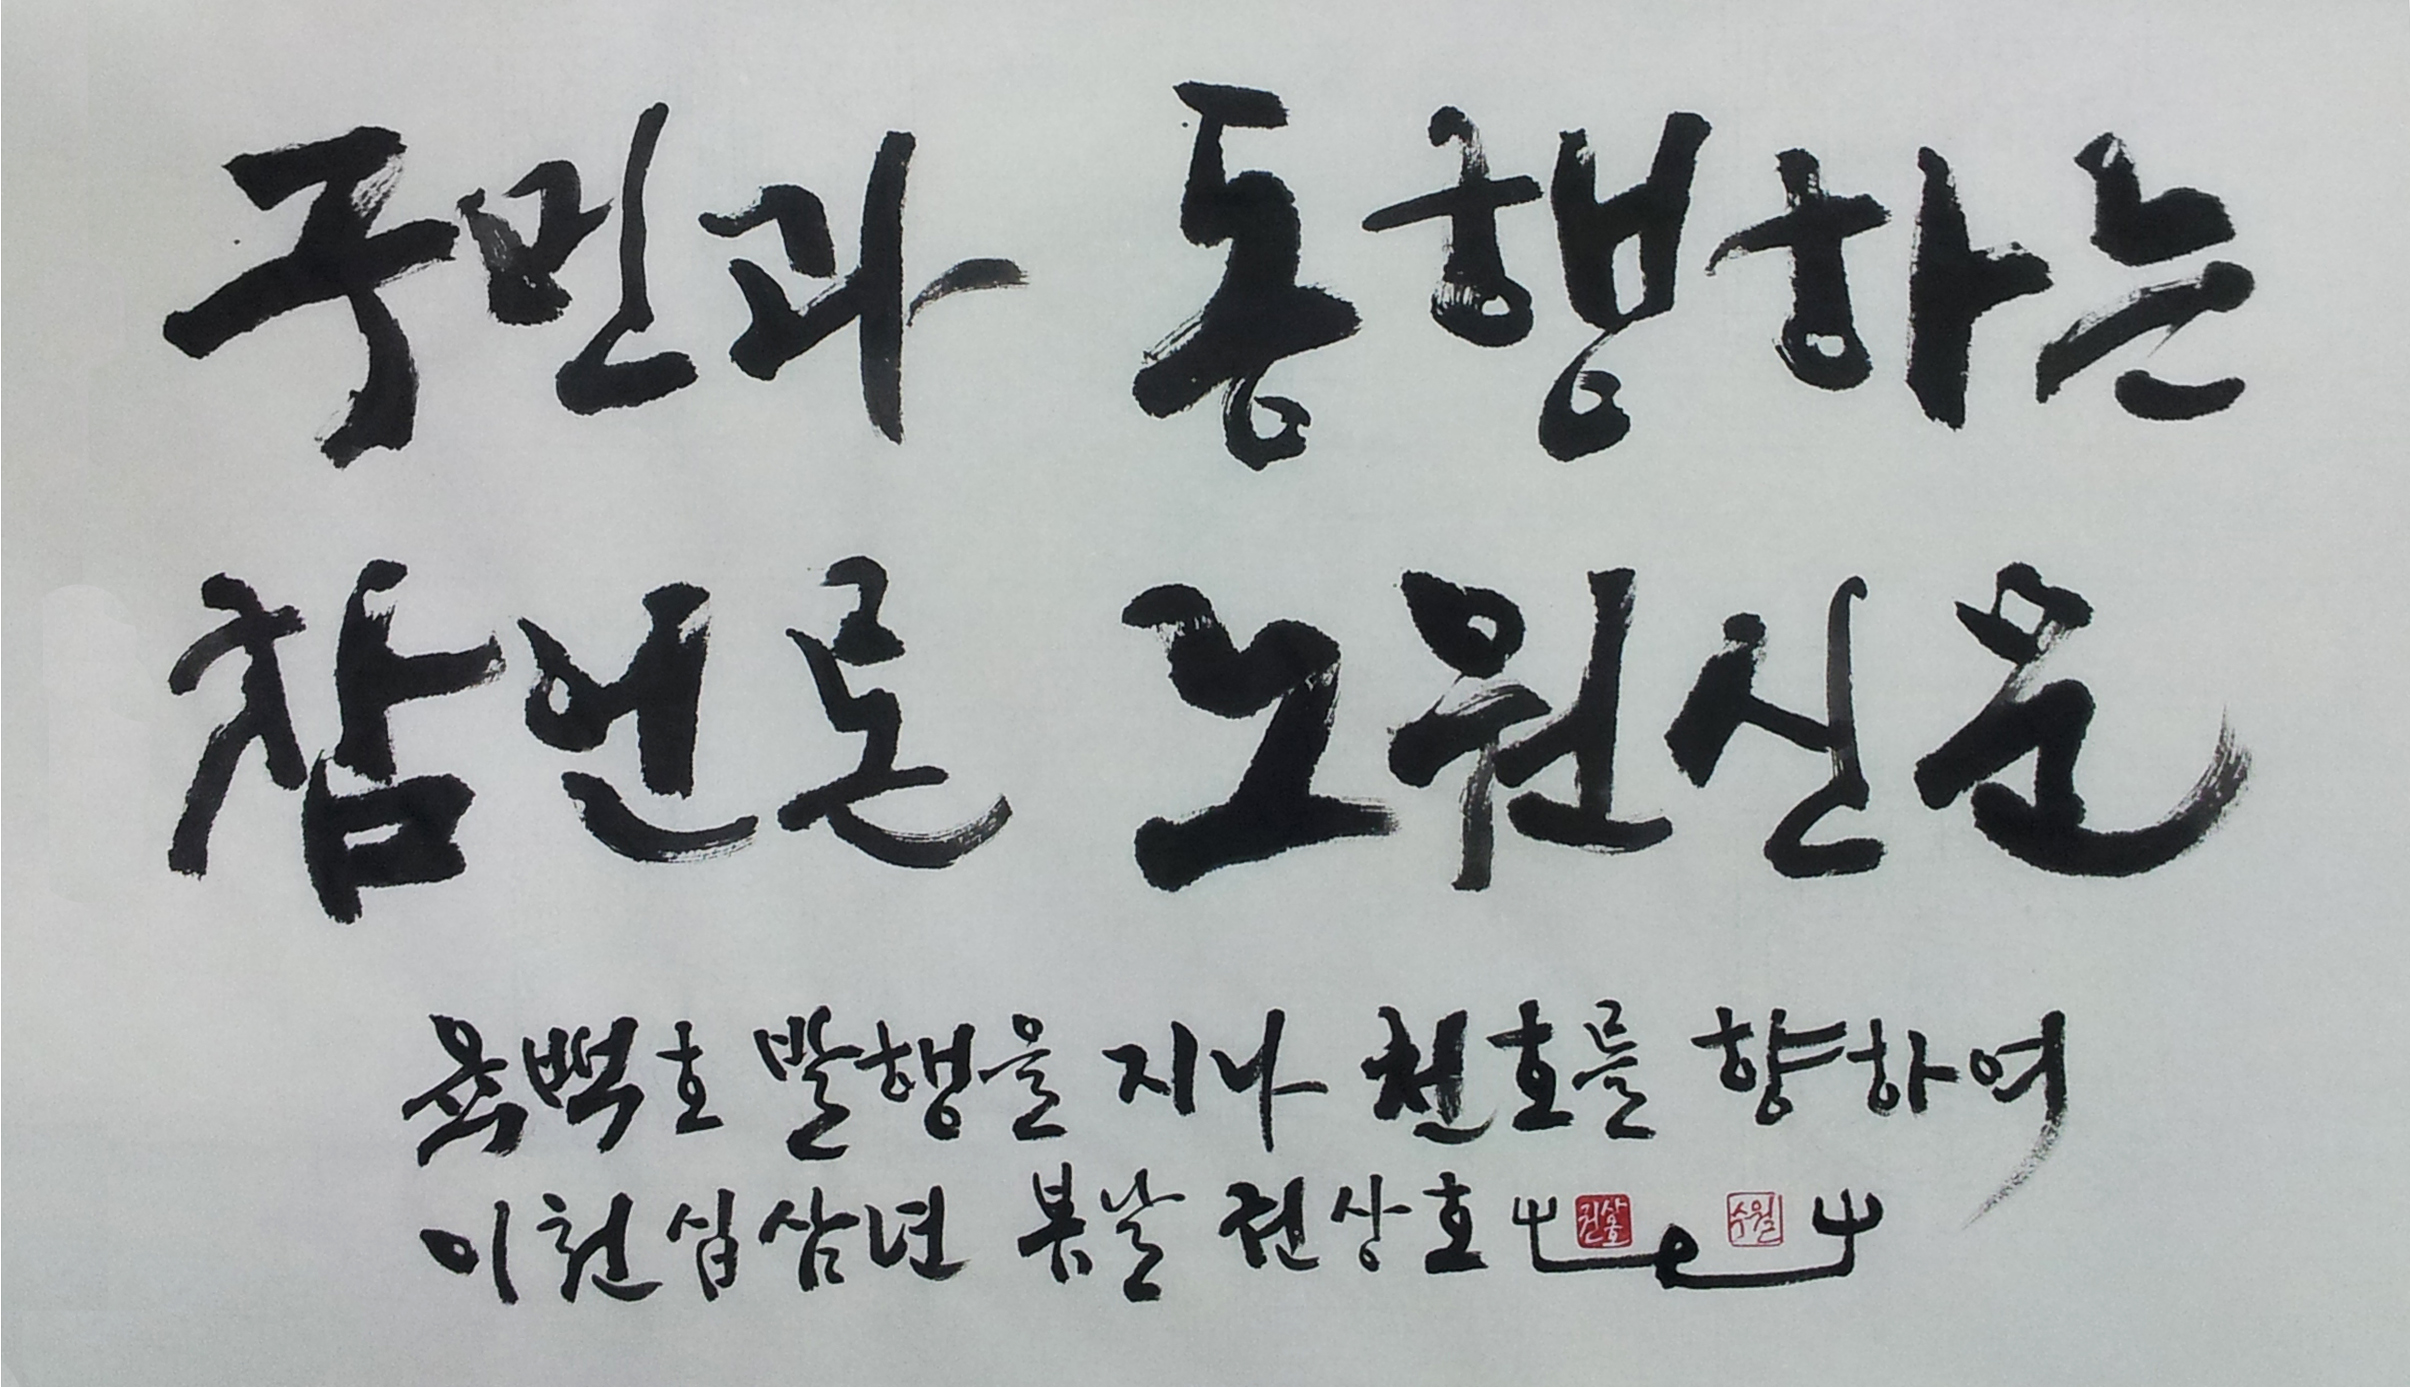 국민과 동행하는
참언론 노원신문
육백호 발행을 지나 천호를 향하여
이천십삼년 봄날 권상호
권상호
수월